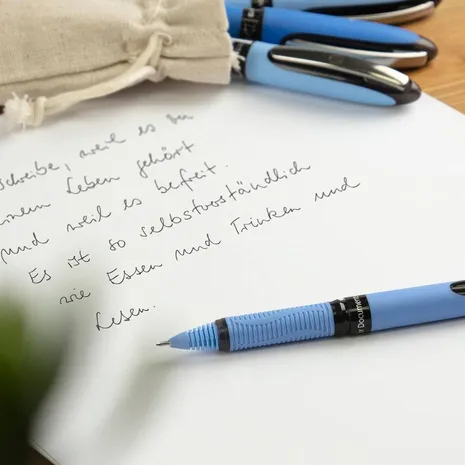 schreibe, weil es zu
meinem Leben gehört
und weil es befreit.
Es ist so selbstverständlich
wie Essen und Trinken und
Lesen.
Document